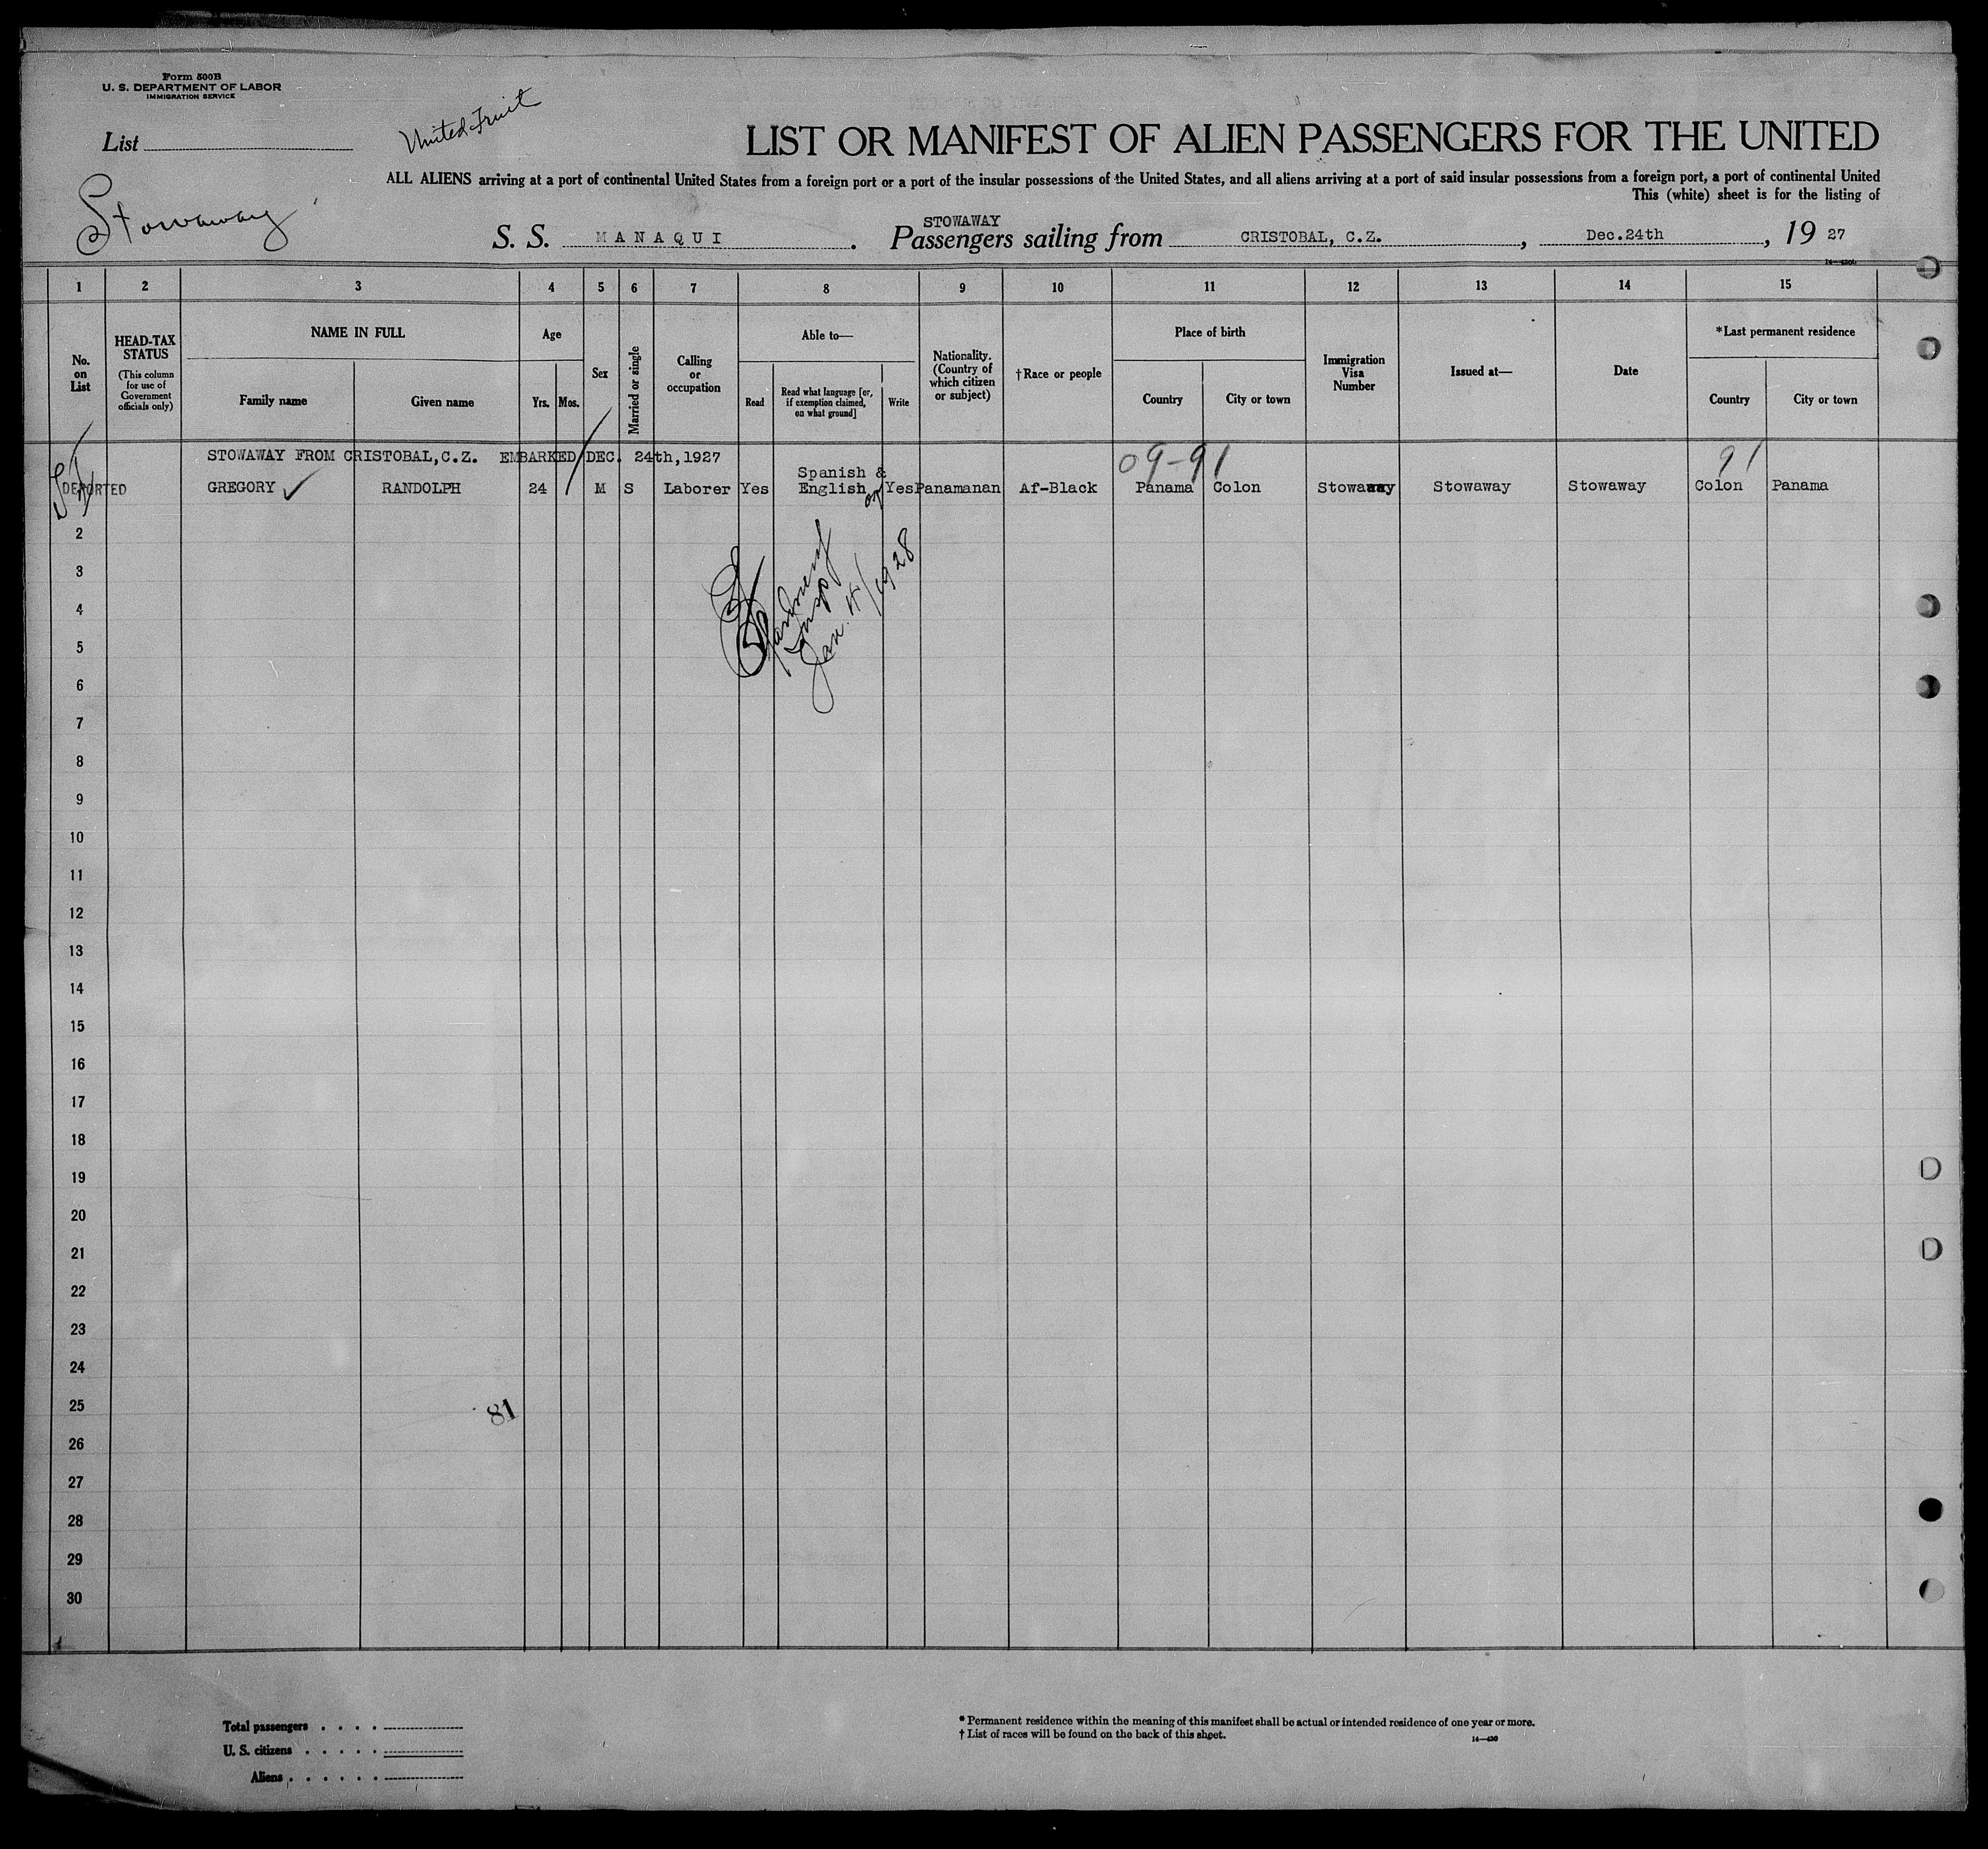 Form 500B
U. S. DEPARTMENT OF LABOR
IMMIGRATION SERVICE
List
United Fruit
LIST OR MANIFEST OF ALIEN PASSENGERS FOR THE UNITED
ALL ALIENS arriving at a port of continental United States from a foreign port or a port of the insular possessions of the United States, and all aliens arriving at a port of said insular possessions from a foreign port, a port of continental United
This (white) sheet is for the listing of
Stowaway
STOWAWAY
S. S. MANAQUI. Passengers sailing from CRISTOBAL, C.Z., Dec.24th, 1927
1 2 3 4 5 6 7 8 9 10 11 12 13 14 15
No. on List
HEAD-TAX STATUS
(This column for use of Government officials only)
NAME IN FULL
Family name Given name
Age
Yrs. Mos.
Sex
Married or single
Calling or occupation
Able to—
Read
Read what language [or, if exemption claimed, on what ground]
Write
Nationality. (Country of which citizen or subject)
†Race or people
Place of birth
Country City or town
Immigration Visa Number
Issued at—
Date
*Last permanent residence
Country City or town
STOWAWAY FROM CRISTOBAL,C.Z. EMBARKED DEC. 24th,1927
09-91 91
DEPORTED GREGORY RANDOLPH 24 M S Laborer Yes Spanish & English Yes Panamanan Af-Black Panama Colon Stowaway Stowaway Stowaway Colon Panama
Insp
Jan. 4/1928
2
3
4
5
6
7
8
9
10
11
12
13
14
15
16
17
18
19
20
21
22
23
24
25
81
26
27
28
29
30
Total passengers . . . .
U. S. citizens . . . . .
Aliens . . . . . .
* Permanent residence within the meaning of this manifest shall be actual or intended residence of one year or more.
† List of races will be found on the back of this sheet.
14—430